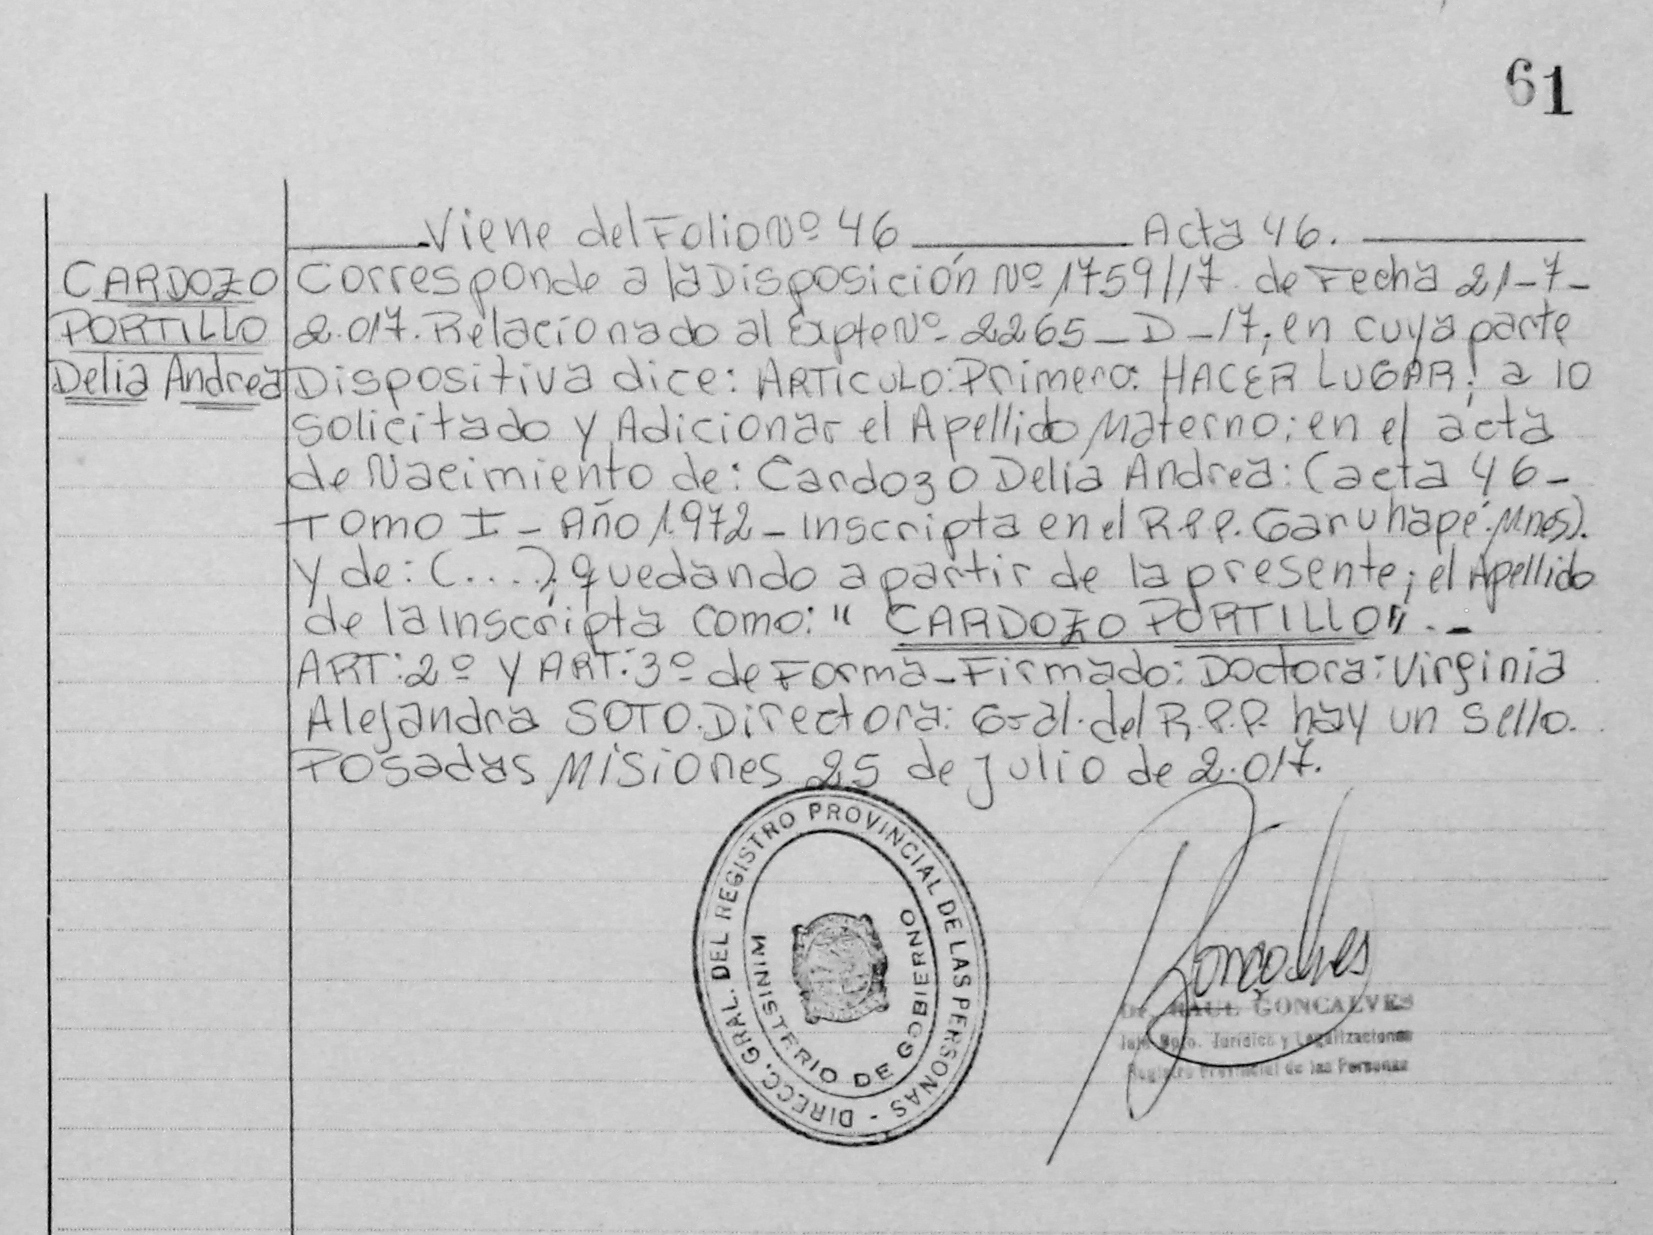 61
Viene del Folio Nº 46 Acta 46.
CARDOZO
PORTILLO
Delia Andrea
Corresponde a la Disposición Nº 1759/17. de Fecha 21-7-
2.017. Relacionado al Expte Nº 2265-D-17; en cuya parte
Dispositiva dice: ARTICULO: Primero: HACER LUGAR; a lo
solicitado y Adicionar el Apellido Materno; en el acta
de Nacimiento de: Cardozo Delia Andrea: (acta 46-
Tomo I - Año 1.972 - Inscripta en el R.P.P. Garuhapé. Mnes).
y de: (....); quedando a partir de la presente; el Apellido
de la Inscripta como: " CARDOZO PORTILLO".-
ART: 2º y ART: 3º de Forma - Firmado: Doctora: Virginia
Alejandra SOTO. Directora: Gral. del R.P.P. hay un sello.
Posadas Misiones 25 de Julio de 2.017.
DIRECC. GRAL. DEL REGISTRO PROVINCIAL DE LAS PERSONAS -
MINISTERIO DE GOBIERNO
Goncalves
Dr. RAUL GONCALVES
Jefe Dpto. Jurídico y Legalizaciones
Registro Provincial de las Personas